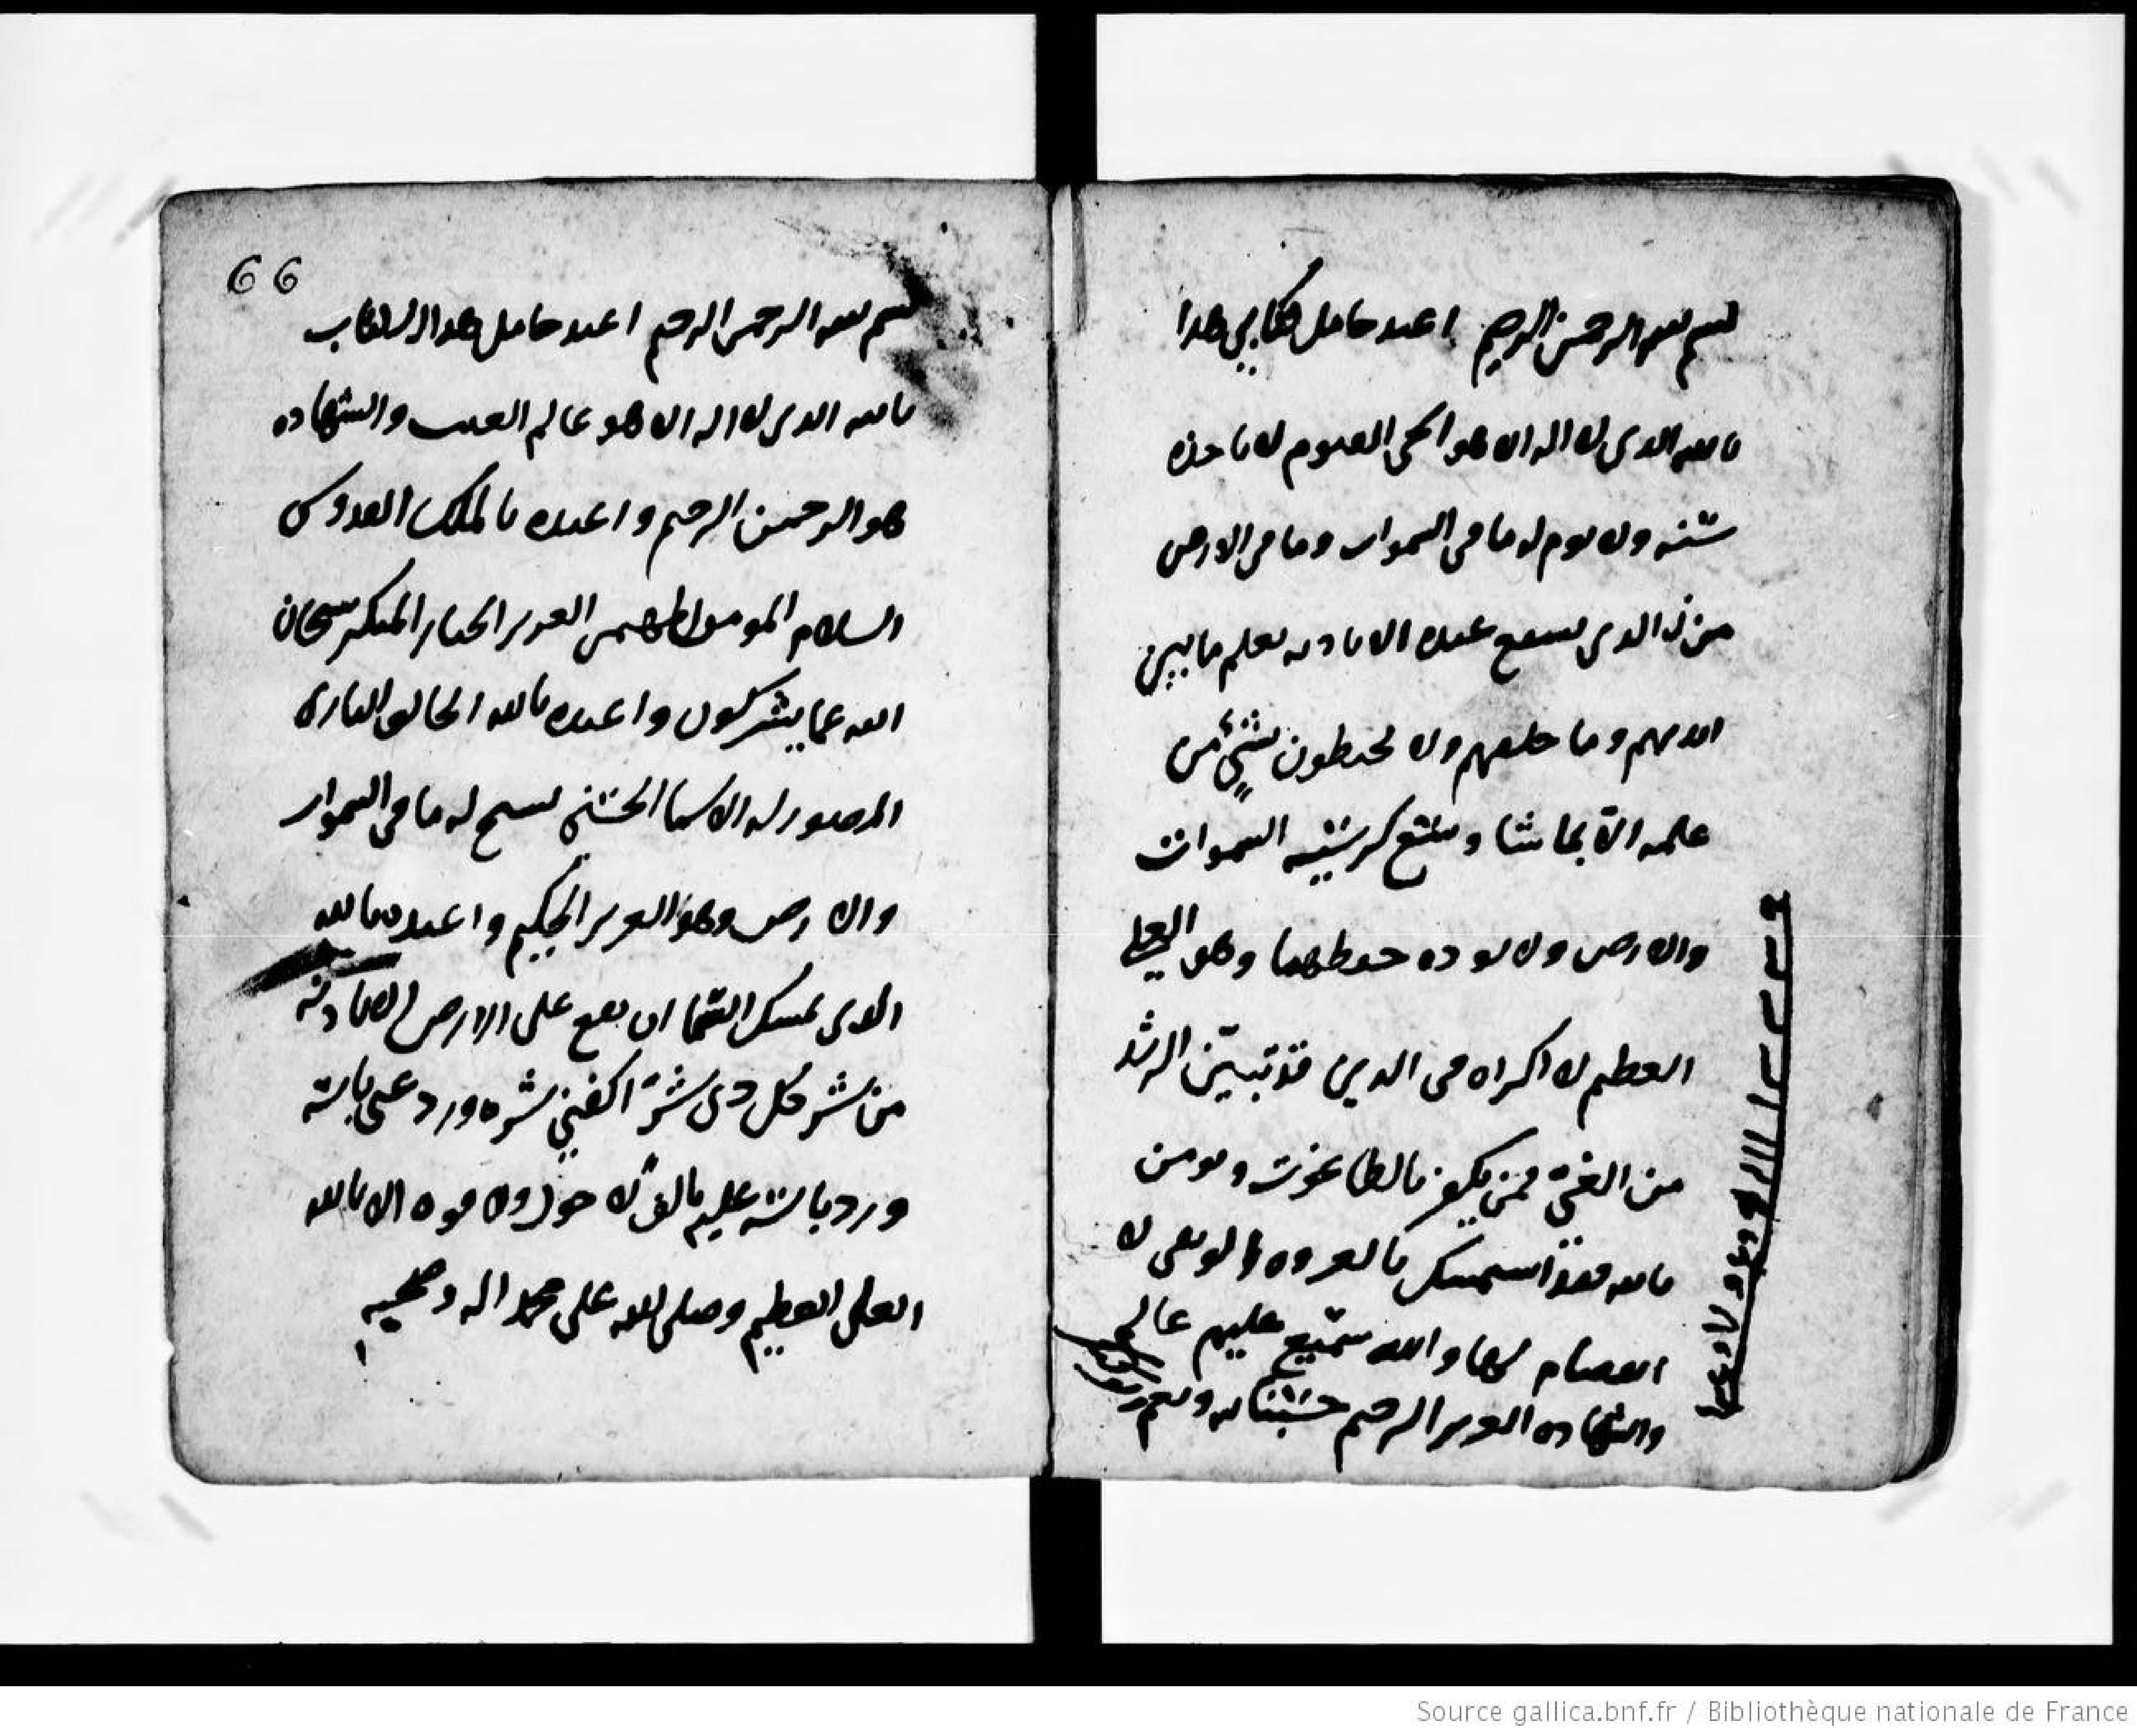 بسم الله الرحمن الرحيم اعيد حامل كتابي هدا
بالله الدى لا اله الا هو الحي القيوم لا تاخذه
سنه ولا نوم له ما في السموات وما في الارض
من ذا الدى يشفع عنده الا باذنه يعلم ما بين
ايديهم وما خلفهم ولا يحيطون بشئ من
علمه الا بما شا وسع كرسيه السموات
والارض ولا يوده حفظهما وهو العلي
العظيم لا اكراه في الدين قد تبين الرشد
من الغي فمن يكفر بالطاغوت ويومن
بالله فقد استمسك بالعروه الوثقى لا
انفصام لها والله سميع عليم عالم
والشهاده العزيز الرحيم حسبنا الله ونعم
66
بسم الله الرحمن الرحيم اعيد حامل هدا الكتاب
بالله الدى لا اله الا هو عالم الغيب والشهاده
هو الرحمن الرحيم واعيده بالملك القدوس
السلام المومن المهيمن العزيز الجبار المتكبر سبحان
الله عما يشركون واعيده بالله الخالق البارى
المصور له الاسما الحسنى يسبح له ما في السموات
والارض وهو العزيز الحكيم واعيده بالله
الدى يمسك السما ان تقع على الارض الا باذنه
من شر كل دى شر اكفني شره ورد عني باسه
ورد باسه عليه بالف لا حول ولا قوه الا بالله
العلى العظيم وصلى الله على محمد اله وصحبه
Source gallica.bnf.fr / Bibliothèque nationale de France